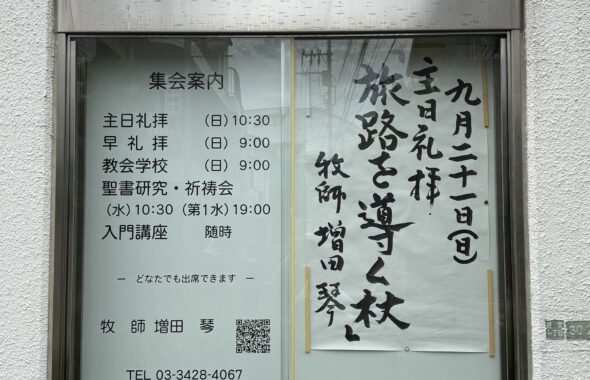 集会案内
主日礼拝 (日)10:30
早礼拝 (日) 9:00
教会学校 (日) 9:00
聖書研究・祈祷会
(水)10:30 (第1水)19:00
入門講座 随時
― どなたでも出席できます ―
牧師 増田 琴
TEL 03-3428-4067
九月二十一日(日)
主日礼拝
「旅路を導く杖」
牧師 増田琴